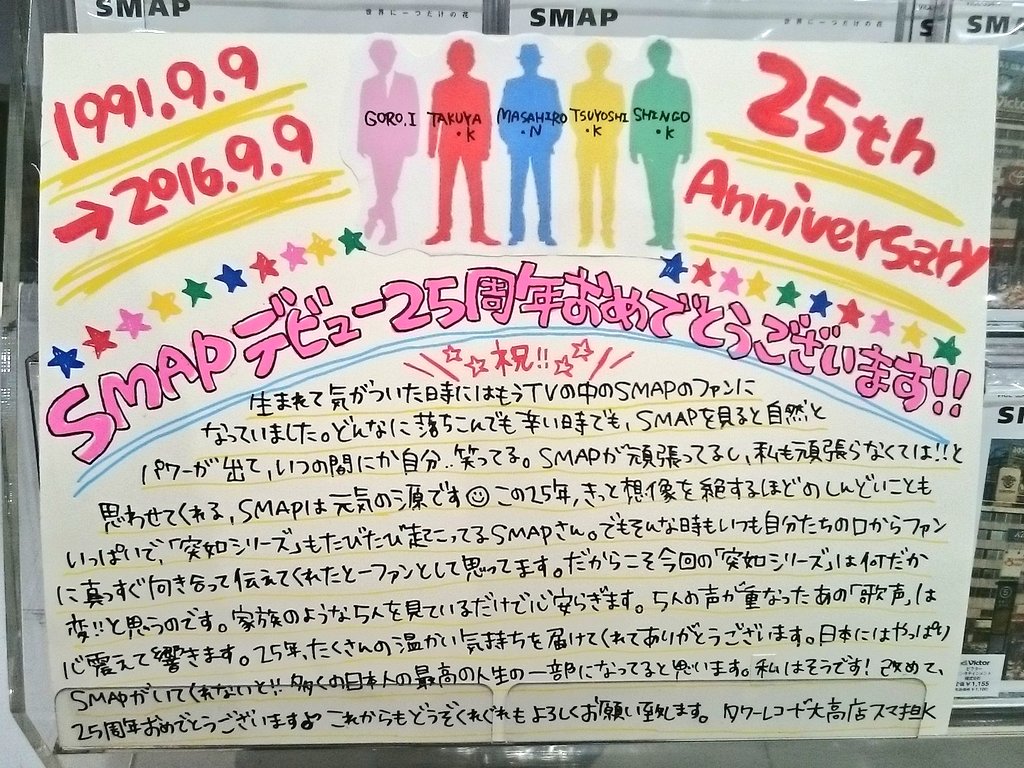 SMAP
世界に一つだけの花
SMAP
世界に一つだけの花
1991.9.9
→2016.9.9
GORO.I
TAKUYA.K
MASAHIRO.N
TSUYOSHI.K
SHINGO.K
25th
Anniversary
SMAPデビュー25周年おめでとうございます!!
祝!!
生まれて気がついた日時にはもうTVの中のSMAPのファンに
なっていました。どんなに落ちこんでも辛い時でも、SMAPを見ると自然と
パワーが出て、いつの間にか自分‥笑ってる。SMAPが頑張ってるし、私も頑張らなくては!!と
思わせてくれる、SMAPは元気の源です☺この25年、きっと想像を絶するほどのしんどいことも
いっぱいで、「突如シリーズ」もたびたび起こってるSMAPさん。でもそんな時もいつも自分たちの口からファン
に真っすぐ向き合って伝えてくれたと一ファンとして思ってます。だからこそ今回の「突如シリーズ」は何だか
変!!と思うのです。家族のような5人を見ているだけで心安らぎます。5人の声が重なったあの「歌声」は
心震えて響きます。25年、たくさんの温かい気持ちを届けてくれてありがとうございます。日本にはやっぱり
SMAPがいてくれないと!!多くの日本人の最高の人生の一部になってると思います。私はそうです!改めて、
25周年おめでとうございます♪これからもどうぞくれぐれもよろしくお願い致します。タワーレコード大高店スマ担K
Victor
¥1,155